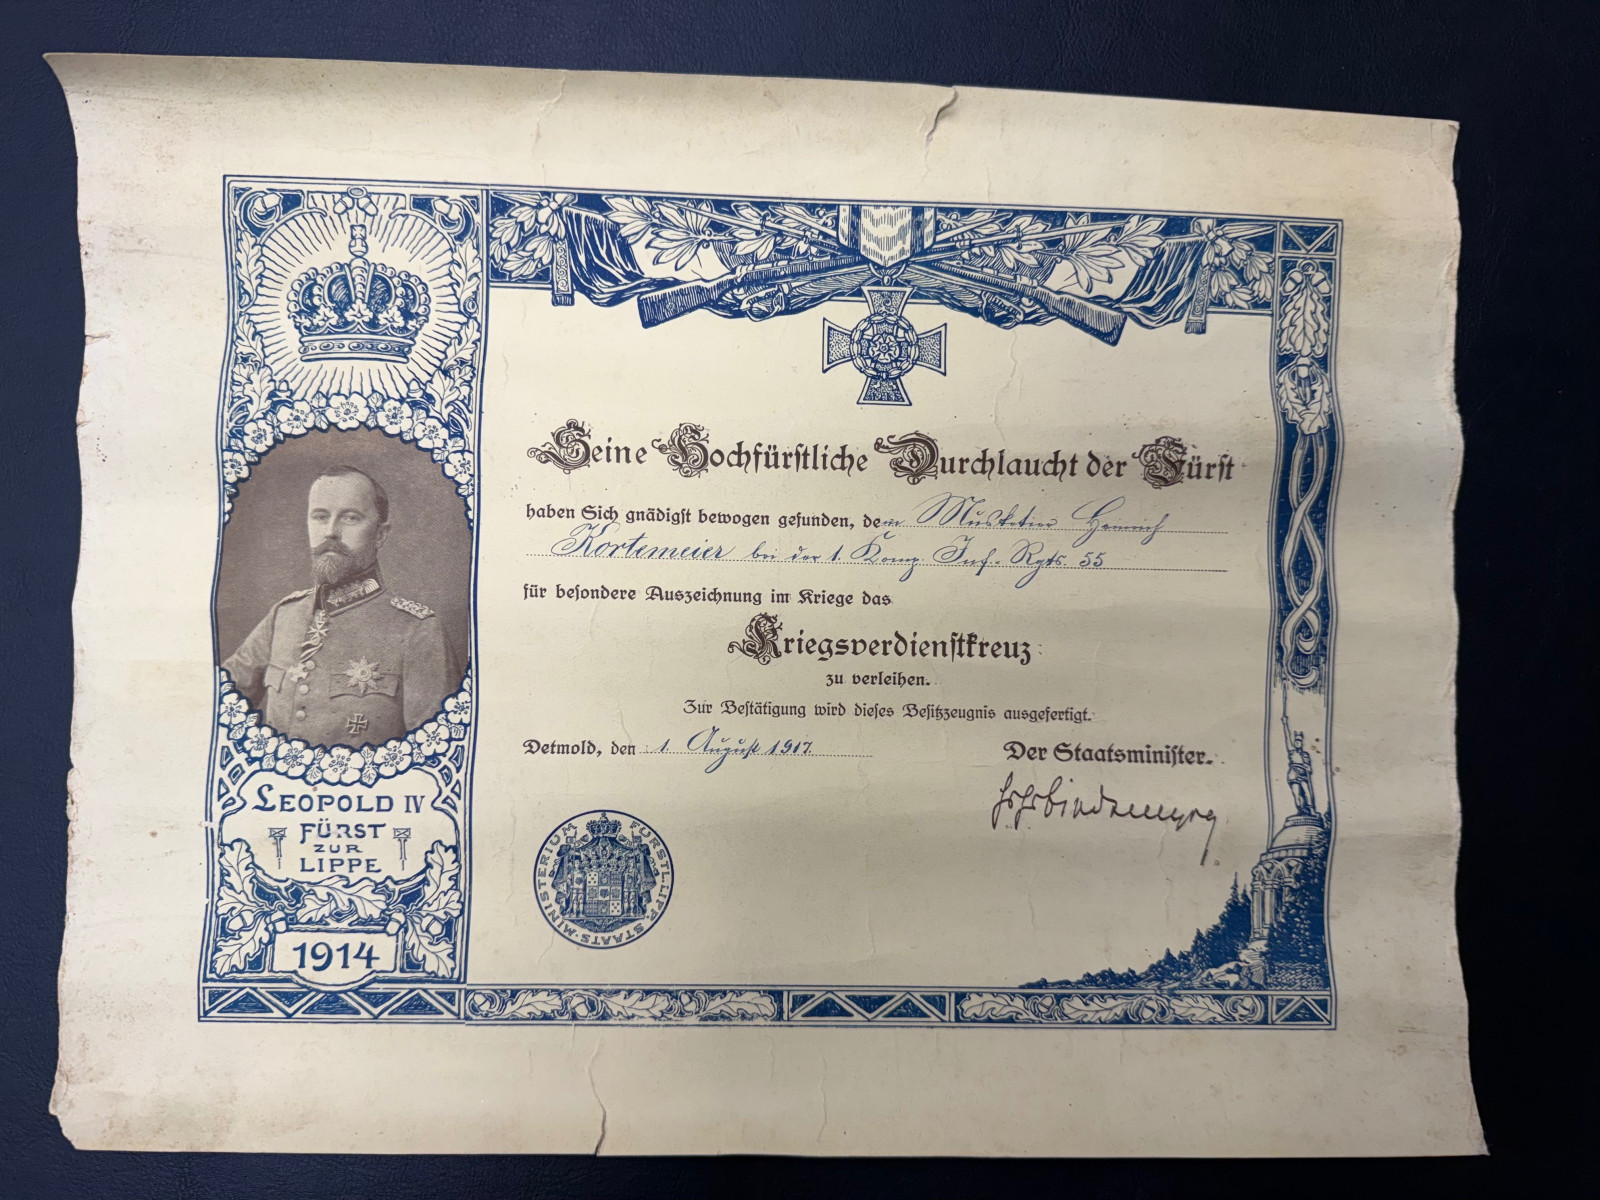 LEOPOLD IV
FÜRST
ZUR
LIPPE
1914
Seine Hochfürstliche Durchlaucht der Fürst
haben Sich gnädigst bewogen gefunden, dem Musketier Heinrich
Kortemeier bei der 1. Komp. Inf. Rgts. 55
für besondere Auszeichnung im Kriege das
Kriegsverdienstkreuz
zu verleihen.
Zur Bestätigung wird dieses Besitzzeugnis ausgefertigt.
Detmold, den 1. August 1917.
Der Staatsminister.
FÜRSTL. LIPP. STAATS-MINISTERIUM